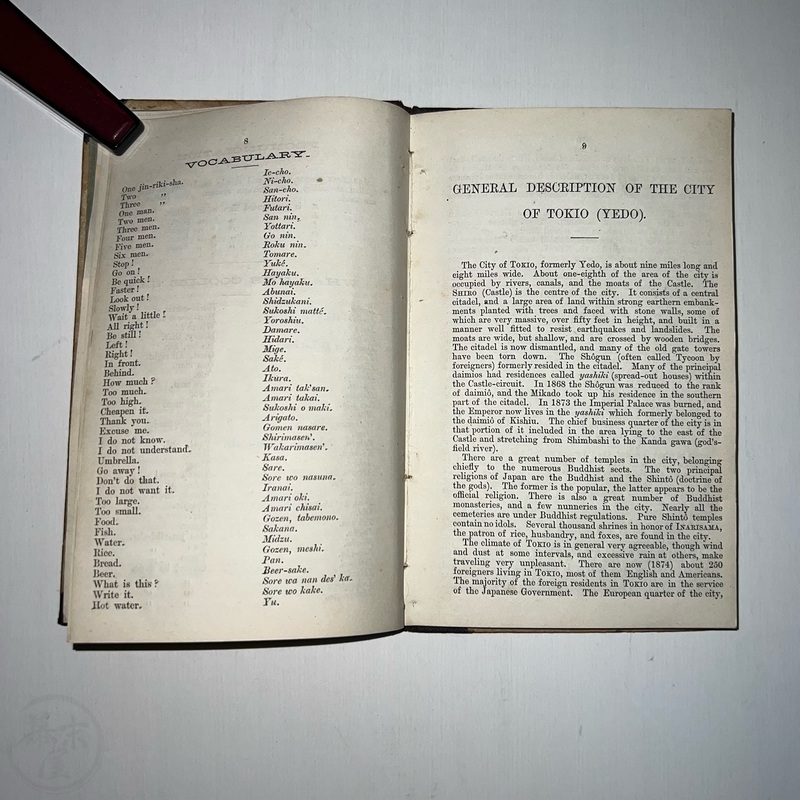 8
VOCABULARY.
One jin-riki-sha. Ic-cho.
Two ” Ni-cho.
Three ” San-cho.
One man. Hitori.
Two men. Futari.
Three men. San nin,
Four men. Yottari.
Five men. Go nin.
Six men. Roku nin.
Stop! Tomare.
Go on! Yuké.
Be quick! Hayaku.
Faster! Mo hayaku.
Look out! Abunai.
Slowly! Shidzukani.
Wait a little! Sukoshi matté.
All right! Yoroshiu.
Be still! Damare.
Left! Hidari.
Right! Mige.
In front. Saké.
Behind. Ato.
How much? Ikura.
Too much. Amari tak'san.
Too high. Amari takai.
Cheapen it. Sukoshi o maki.
Thank you. Arigato.
Excuse me. Gomen nasare.
I do not know. Shirimasen'.
I do not understand. Wakarimasen'.
Umbrella. Kasa.
Go away! Sare.
Don't do that. Sore wo nasuna.
I do not want it. Iranai.
Too large. Amari oki.
Too small. Amari chisai.
Food. Gozen, tabemono.
Fish. Sakana.
Water. Midzu.
Rice. Gozen, meshi.
Bread. Pan.
Beer. Beer-sake.
What is this? Sore wa nan des' ka.
Write it. Sore wo kake.
Hot water. Yu.
9
GENERAL DESCRIPTION OF THE CITY
OF TOKIO (YEDO).
The City of TOKIO, formerly Yedo, is about nine miles long and
eight miles wide. About one-eighth of the area of the city is
occupied by rivers, canals, and the moats of the Castle. The
SHIRO (Castle) is the centre of the city. It consists of a central
citadel, and a large area of land within strong earthen embank-
ments planted with trees and faced with stone walls, some of
which are very massive, over fifty feet in height, and built in a
manner well fitted to resist earthquakes and landslides. The
moats are wide, but shallow, and are crossed by wooden bridges.
The citadel is now dismantled, and many of the old gate towers
have been torn down. The Shôgun (often called Tycoon by
foreigners) formerly resided in the citadel. Many of the principal
daimios had residences called yashiki (spread-out houses) within
the Castle-circuit. In 1868 the Shôgun was reduced to the rank
of daimiô, and the Mikado took up his residence in the southern
part of the citadel. In 1873 the Imperial Palace was burned, and
the Emperor now lives in the yashiki which formerly belonged to
the daimiô of Kishiu. The chief business quarter of the city is in
that portion of it included in the area lying to the east of the
Castle and stretching from Shimbashi to the Kanda gawa (god's-
field river).
There are a great number of temples in the city, belonging
chiefly to the numerous Buddhist sects. The two principal
religions of Japan are the Buddhist and the Shintô (doctrine of
the gods). The former is the popular, the latter appears to be the
official religion. There is also a great number of Buddhist
monasteries, and a few nunneries in the city. Nearly all the
cemeteries are under Buddhist regulations. Pure Shintô temples
contain no idols. Several thousand shrines in honor of INARISAMA,
the patron of rice, husbandry, and foxes, are found in the city.
The climate of TOKIO is in general very agreeable, though wind
and dust at some intervals, and excessive rain at others, make
traveling very unpleasant. There are now (1874) about 250
foreigners living in TOKIO, most of them English and Americans.
The majority of the foreign residents in TOKIO are in the service
of the Japanese Government. The European quarter of the city,